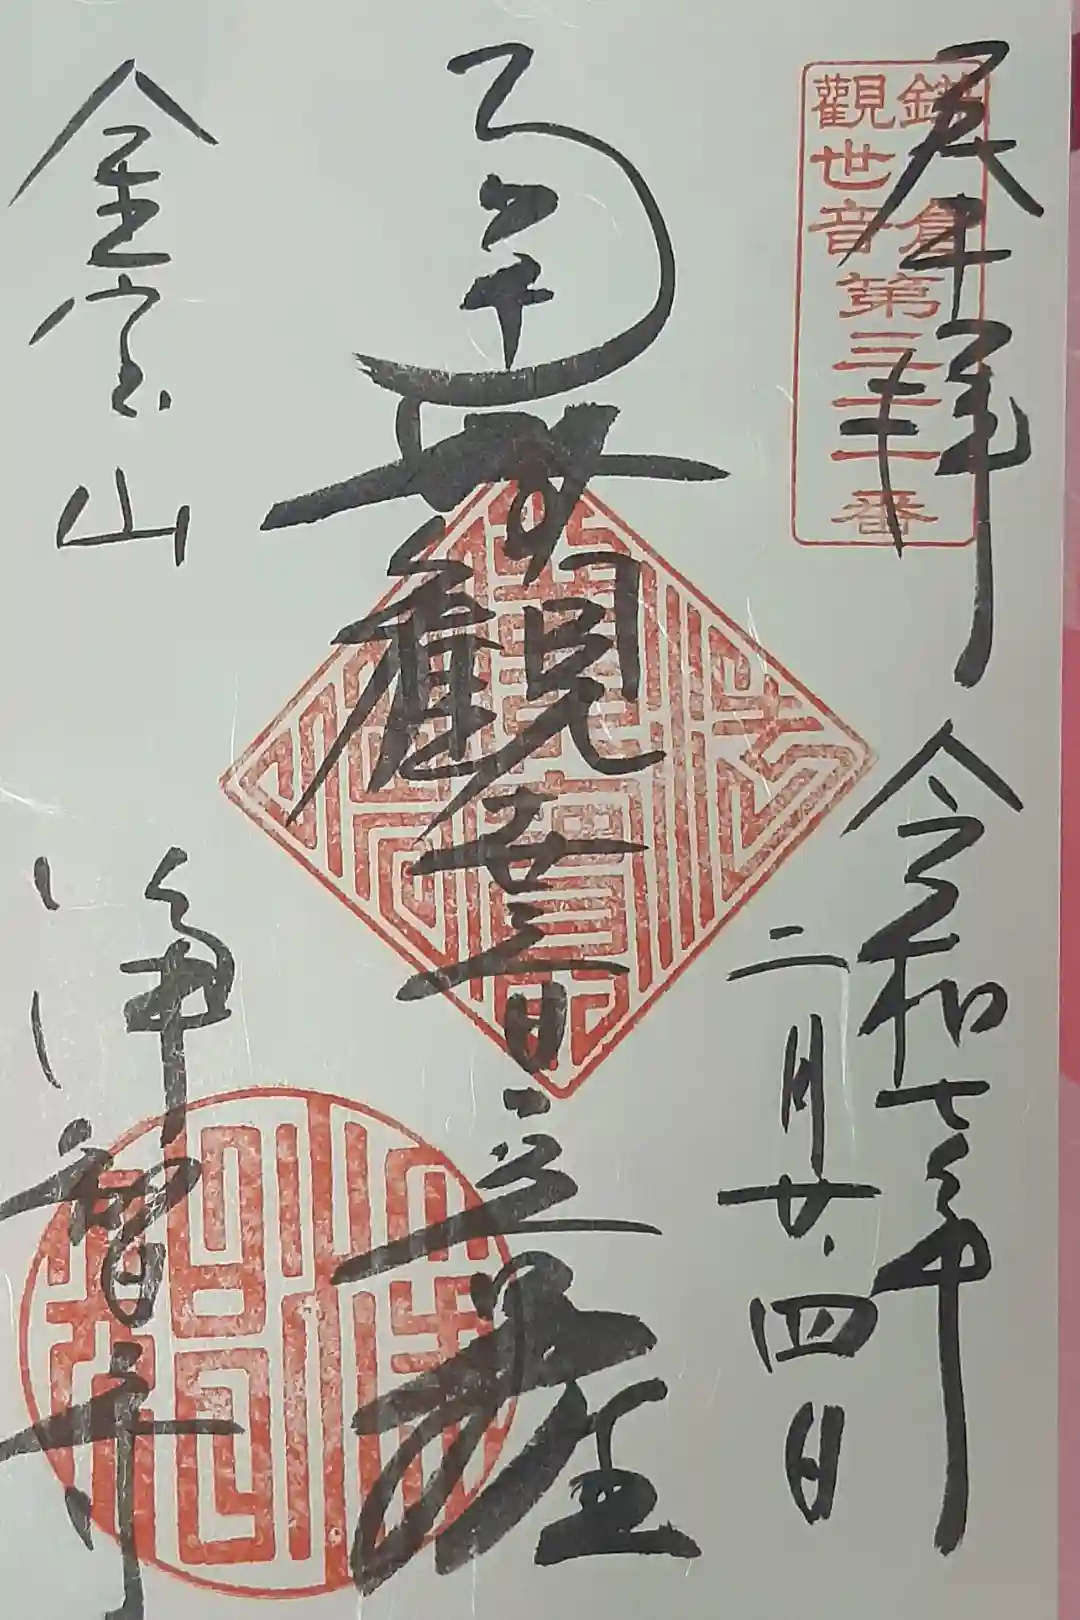 奉拝
令和七年
二月廿四日
鎌倉
觀世音第三十一番
南無觀世音菩薩
金宝山
浄智寺